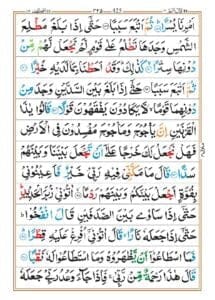 اَمْرِنَا یُسْرًا ۟ ثُمَّ اَتْبَعَ سَبَبًا ۟ حَتّٰۤی اِذَا بَلَغَ مَطْلِعَ
الشَّمْسِ وَجَدَهَا تَطْلُعُ عَلٰی قَوْمٍ لَّمْ نَجْعَلْ لَّهُمْ مِّنْ
دُوْنِهَا سِتْرًا ۟ كَذٰلِكَ ؕ وَقَدْ اَحَطْنَا بِمَا لَدَیْهِ خُبْرًا ۟
ثُمَّ اَتْبَعَ سَبَبًا ۟ حَتّٰۤی اِذَا بَلَغَ بَیْنَ السَّدَّیْنِ وَجَدَ مِنْ
دُوْنِهِمَا قَوْمًا ۙ لَّا یَكَادُوْنَ یَفْقَهُوْنَ قَوْلًا ۟ قَالُوْا یٰذَا
الْقَرْنَیْنِ اِنَّ یَاْجُوْجَ وَمَاْجُوْجَ مُفْسِدُوْنَ فِی الْاَرْضِ
فَهَلْ نَجْعَلُ لَكَ خَرْجًا عَلٰۤی اَنْ تَجْعَلَ بَیْنَنَا وَبَیْنَهُمْ
سَدًّا ۟ قَالَ مَا مَكَّنِّیْ فِیْهِ رَبِّیْ خَیْرٌ فَاَعِیْنُوْنِیْ
بِقُوَّةٍ اَجْعَلْ بَیْنَكُمْ وَبَیْنَهُمْ رَدْمًا ۟ اٰتُوْنِیْ زُبَرَ الْحَدِیْدِ ؕ
حَتّٰۤی اِذَا سَاوٰی بَیْنَ الصَّدَفَیْنِ قَالَ انْفُخُوْا ؕ
حَتّٰۤی اِذَا جَعَلَهٗ نَارًا ۙ قَالَ اٰتُوْنِیْۤ اُفْرِغْ عَلَیْهِ قِطْرًا ۟
فَمَا اسْطَاعُوْۤا اَنْ یَّظْهَرُوْهُ وَمَا اسْتَطَاعُوْا لَهٗ نَقْبًا ۟
قَالَ هٰذَا رَحْمَةٌ مِّنْ رَّبِّیْ ۚ فَاِذَا جَآءَ وَعْدُ رَبِّیْ جَعَلَهٗ